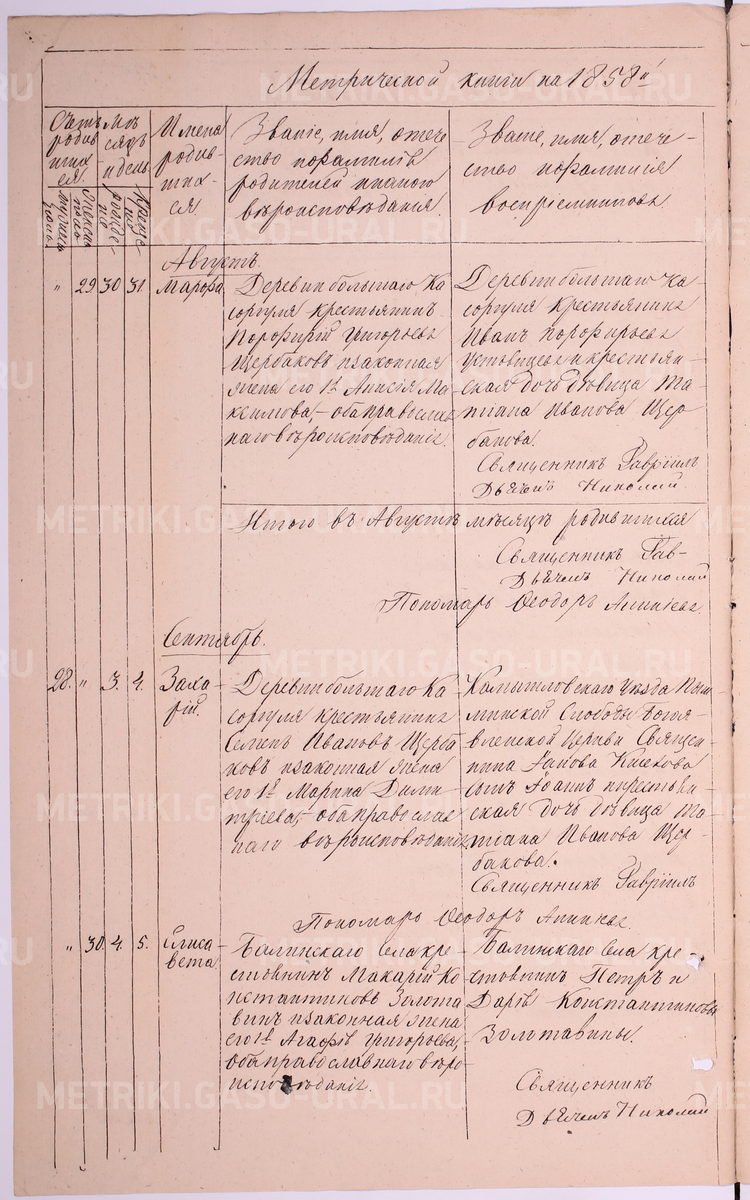 Метрической книги на 1858й
Счетъ родившихся.
Мужеска пола
Женска пола
Мѣсяцъ и день.
рожденія
крещенія
Имена родившихся
Званіе, имя, отечество и фамилія родителей и какого вѣроисповѣданія.
Званіе, имя, отечество и фамилія воспріемниковъ.
Августъ.
" 29 30 31. Мавра
Деревни большаго Ка
соргуля крестьянинъ
Порфирій Григорьевъ
Щербаковъ и законная
жена его 1я Анисія Ма
ксимова, обаправослав
наговѣроисповѣданія.
Деревни большаго Ка
соргуля Крестьянинъ
Иванъ Порфирьевъ
Устовицевъ и крестьян
ская дочь дѣвица Та
тиана Иванова Щер
бакова.
Священникъ Гавріилъ
Дьячекъ Николай
Итого въ Августѣ мѣсяцѣ родившихся
Священникъ Гав-
Дьячекъ Николай
Пономарь Ѳеодоръ
Сентябрь.
28. " 3. 4. Заха-
рій.
Деревни большаго Ка
соргуля крестьянинъ
Семенъ Ивановъ Щерба
ковъ и законная жена
его 1я Марина Дими
тріева, обаправослав
наго вѣроисповѣданія
Камышловскаго уѣзда Пыш
минской Слободы Богоя-
вленской Церкви Священ-
ника Іакова
сынъ Іоаннъ и крестьян
ская дочь дѣвица Та
тиана Иванова Щер-
бакова.
Священникъ Гавріилъ
Пономарь Ѳеодоръ
" 30. 4. 5. Елиса-
вета
Балинскаго села кре-
стьянинъ Макарій Ко
нстантиновъ Золота
винъ и законная жена
его 1я Агафія Григорьева,
оба православнаго вѣро-
исповѣданія.
Балинскаго села кре-
стьянинъ Петръ и
Дарія Константиновы
Золотавины.
Священникъ
Дьячекъ Николай
METRIKI.GASO-URAL.RU